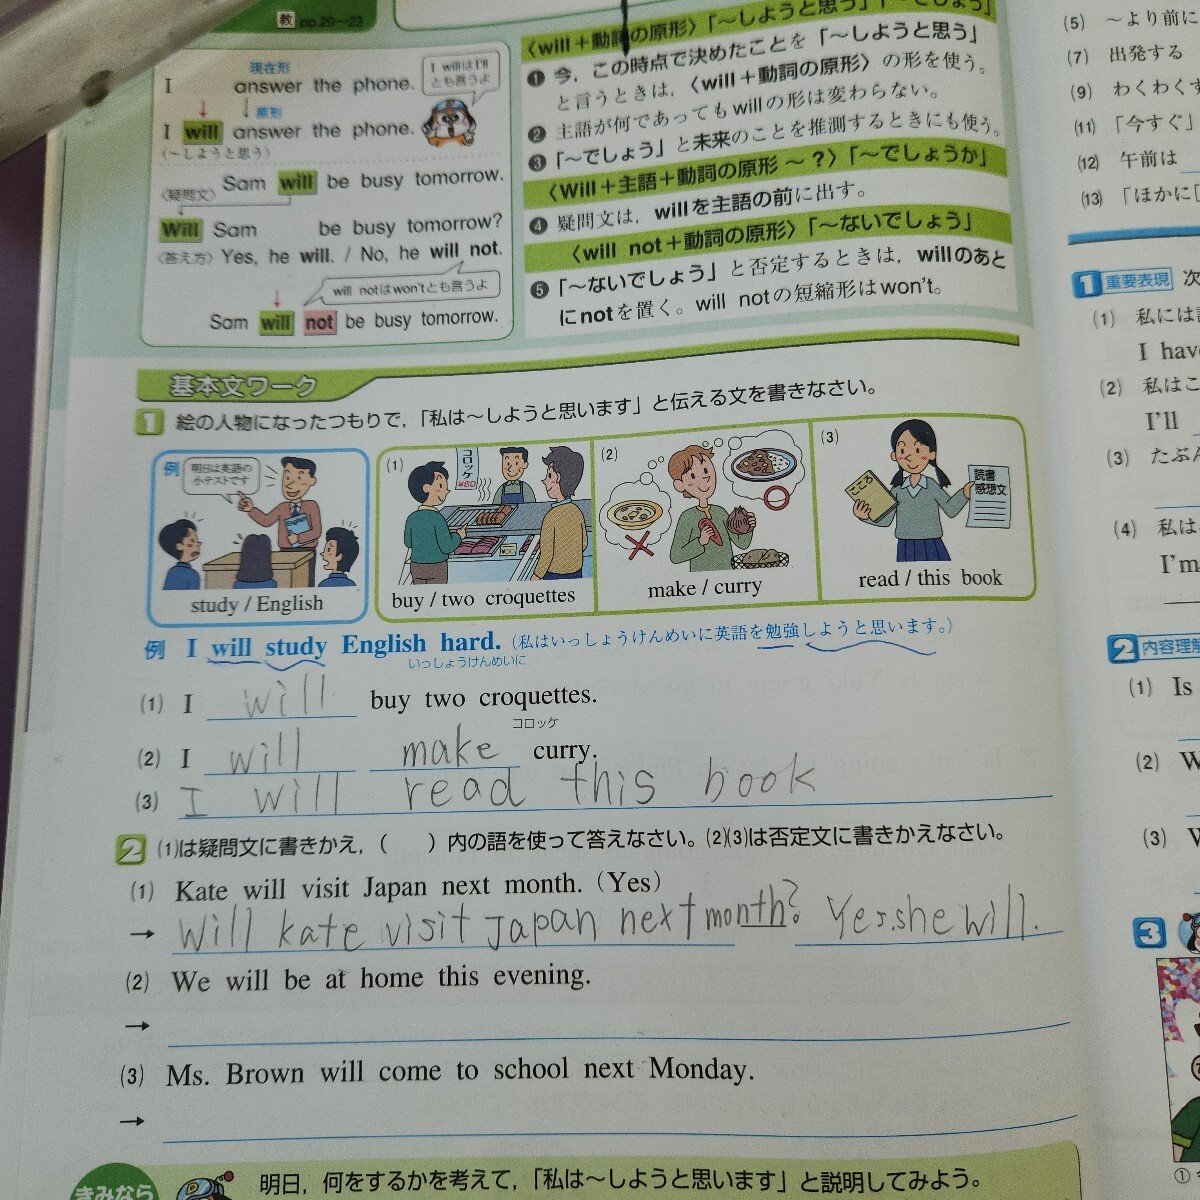 教 pp.20〜23
現在形
I answer the phone.
原形
I will answer the phone.
(〜しようと思う)
I willはI'll
とも言うよ
Sam will be busy tomorrow.
〈疑問文〉
Will Sam be busy tomorrow?
〈答え方〉 Yes, he will. / No, he will not.
will notはwon'tとも言うよ
Sam will not be busy tomorrow.
〈will+動詞の原形〉「〜しようと思う」「〜でしょう」
❶ 今,この時点で決めたことを「〜しようと思う」
と言うときは,〈will+動詞の原形〉の形を使う。
❷ 主語が何であってもwillの形は変わらない。
❸ 「〜でしょう」と未来のことを推測するときにも使う。
〈Will+主語+動詞の原形 〜?〉「〜でしょうか」
❹ 疑問文は,willを主語の前に出す。
〈will not+動詞の原形〉「〜ないでしょう」
❺ 「〜ないでしょう」と否定するときは,willのあと
にnotを置く。will notの短縮形はwon't。
基本文ワーク
1 絵の人物になったつもりで,「私は〜しようと思います」と伝える文を書きなさい。
例
明日は英語の
小テストです
study / English
(1)
コロッケ
¥80
buy / two croquettes
(2)
make / curry
(3)
こころ
読書
感想文
read / this book
例 I will study English hard. (私はいっしょうけんめいに英語を勉強しようと思います。)
いっしょうけんめいに
(1) I will buy two croquettes.
コロッケ
(2) I will make curry.
(3) I will read this book
2 (1)は疑問文に書きかえ,( )内の語を使って答えなさい。(2)(3)は否定文に書きかえなさい。
(1) Kate will visit Japan next month. (Yes)
→ Will kate visit Japan next month? Yes.she will.
(2) We will be at home this evening.
→
(3) Ms. Brown will come to school next Monday.
→
きみなら
明日,何をするかを考えて,「私は〜しようと思います」と説明してみよう。
(5) 〜より前に
(7) 出発する
(9) わくわくす
(11) 「今すぐ」
(12) 午前は
(13) 「ほかに
1 重要表現 次
(1) 私には
I have
(2) 私はこ
I'll
(3) たぶん
(4) 私は
I'm
2 内容理解
(1) Is
(2) W
(3) W
3
①